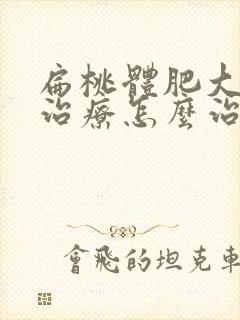 扁桃體肥大
治療怎麼治
會飛的坦克車